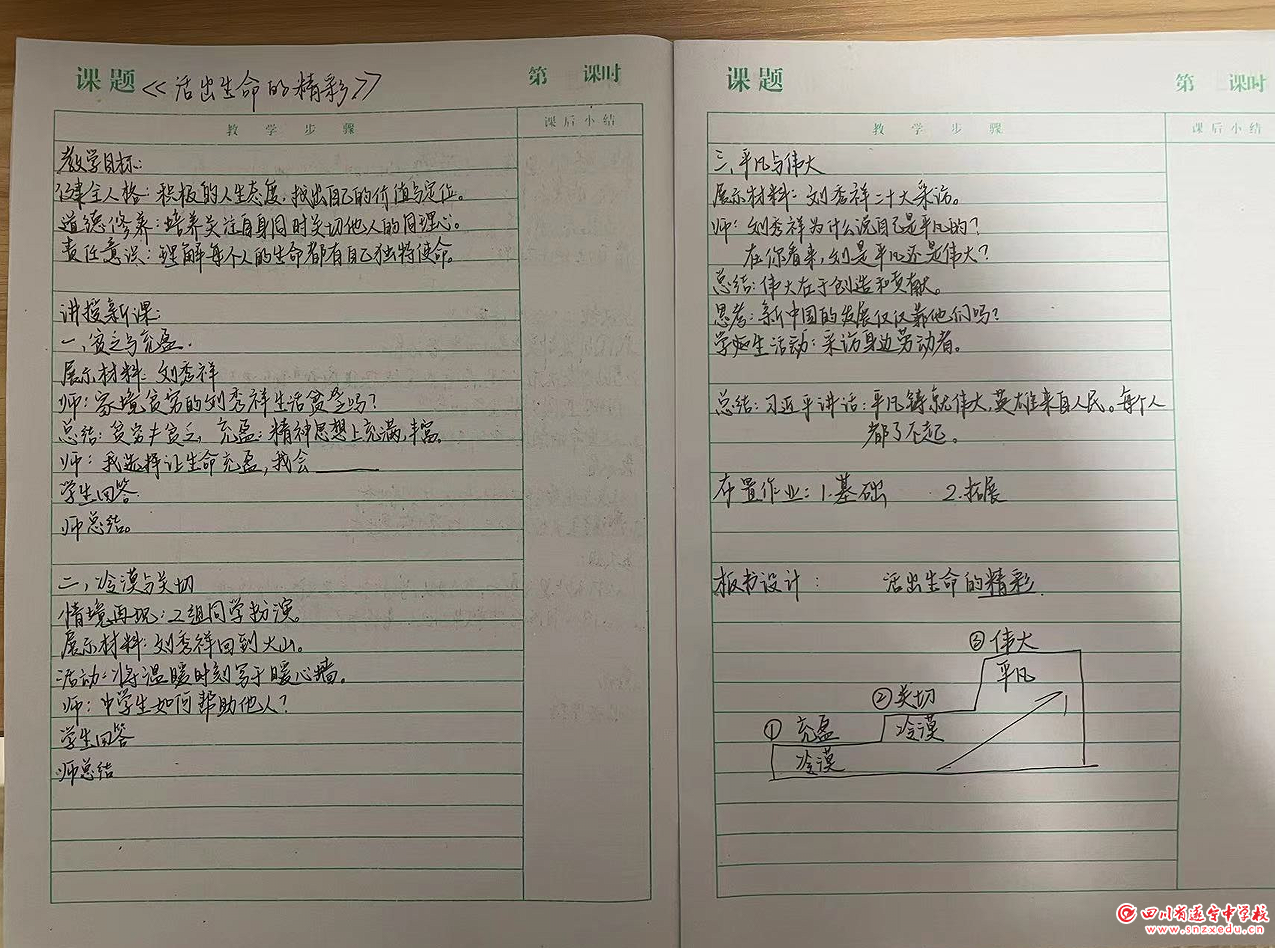 课题 《活出生命的精彩》 第 课时
教学步骤 课后小结
教学目标:
健全人格:积极的人生态度,找出自己的价值与定位。
道德修养:培养关注自身同时关切他人的同理心。
责任意识:理解每个人的生命都有自己独特使命。
讲授新课:
一、贫乏与充盈.
展示材料:刘秀祥
师:家境贫穷的刘秀祥生活贫乏吗?
总结:贫穷≠贫乏, 充盈:精神思想上充满,丰富。
师:我选择让生命充盈,我会____
学生回答.
师总结。
二、冷漠与关切
情境再现:2组同学扮演。
展示材料:刘秀祥回到大山。
活动:将温暖时刻写于暖心墙。
师:中学生如何帮助他人?
学生回答
师总结
课题 第 课时
教学步骤 课后小结
三、平凡与伟大
展示材料:刘秀祥二十大采访。
师:刘秀祥为什么说自己是平凡的?
在你看来,刘是平凡还是伟大?
总结:伟大在于创造和贡献。
思考:新中国的发展仅仅靠他们吗?
学生活动:采访身边劳动者。
总结:习近平讲话:平凡铸就伟大,英雄来自人民。每个人
都了不起。
布置作业:1.基础 2.拓展
板书设计: 活出生命的精彩.
③伟大
平凡
②关切
冷漠
①充盈
冷漠
四川省遂宁中学校
www.snzxedu.cn